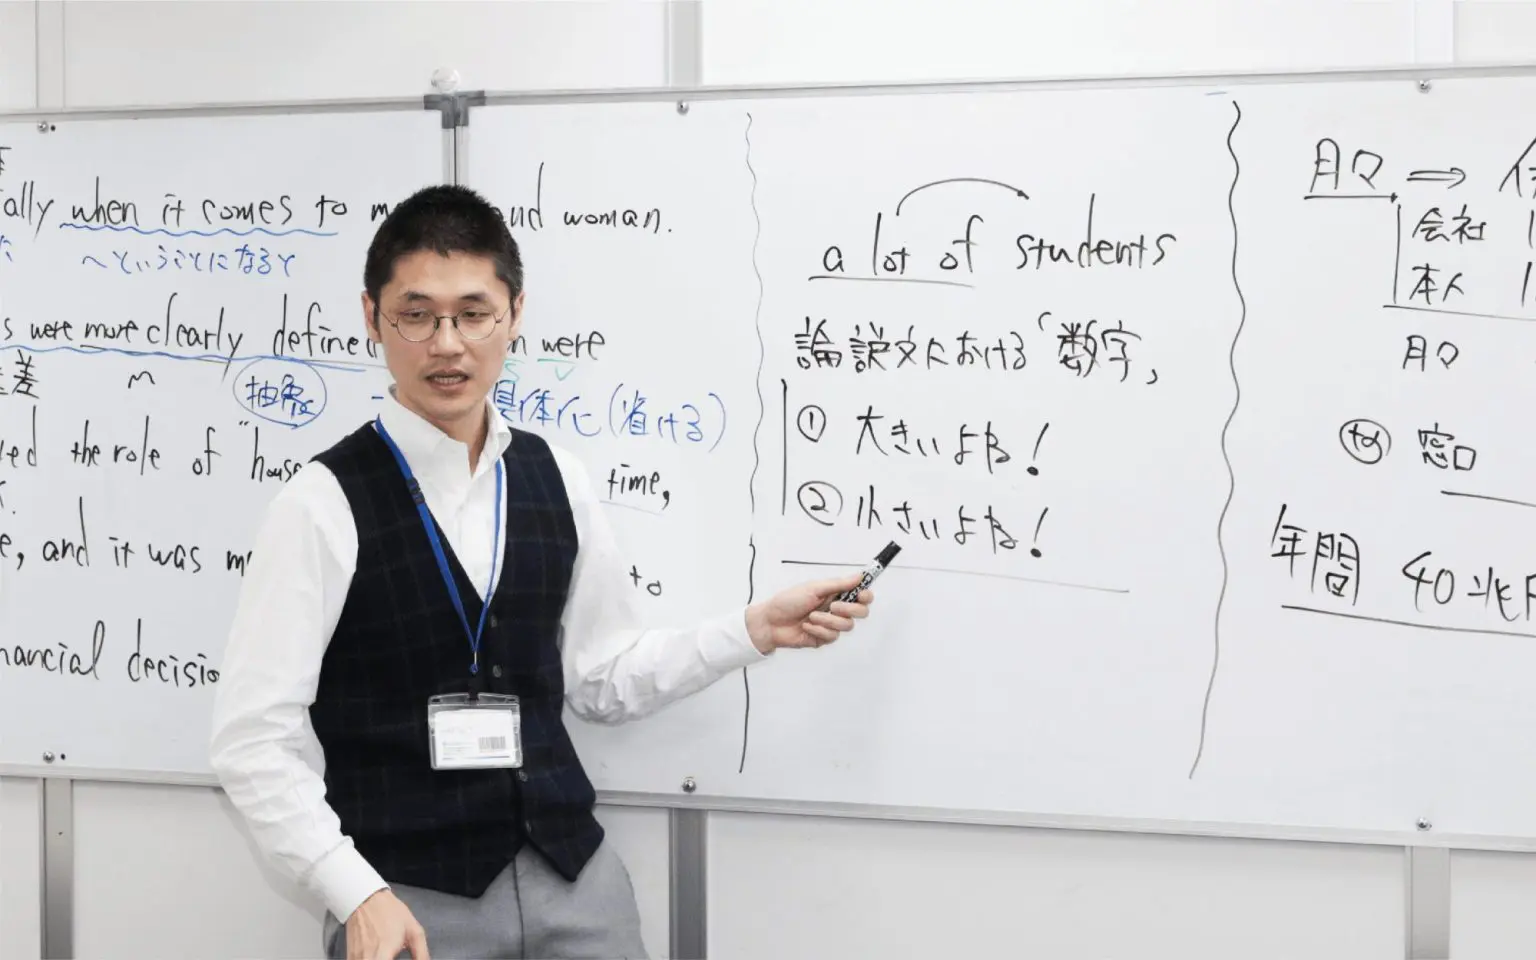 ally when it comes to m nd woman.
へということになると
s were more clearly define n were
差
抽象 具体化(省ける)
ed the role of "house time,
e, and it was m to
nancial decisio
a lot of students
論説文における「数字」
① 大きいよね!
② 小さいよね!
月々 ⇒
会社 1
本人 1
月々
窓口
年間 40兆円